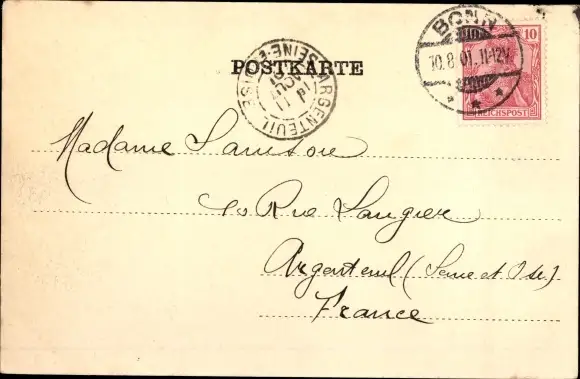 BONN
10.8.01.11-12V
10
REICHSPOST
ARGENTEUIL
SEINE-ET-OISE
POSTKARTE
Madame
Rue Laugier
Argenteuil (Seine et Oise)
France